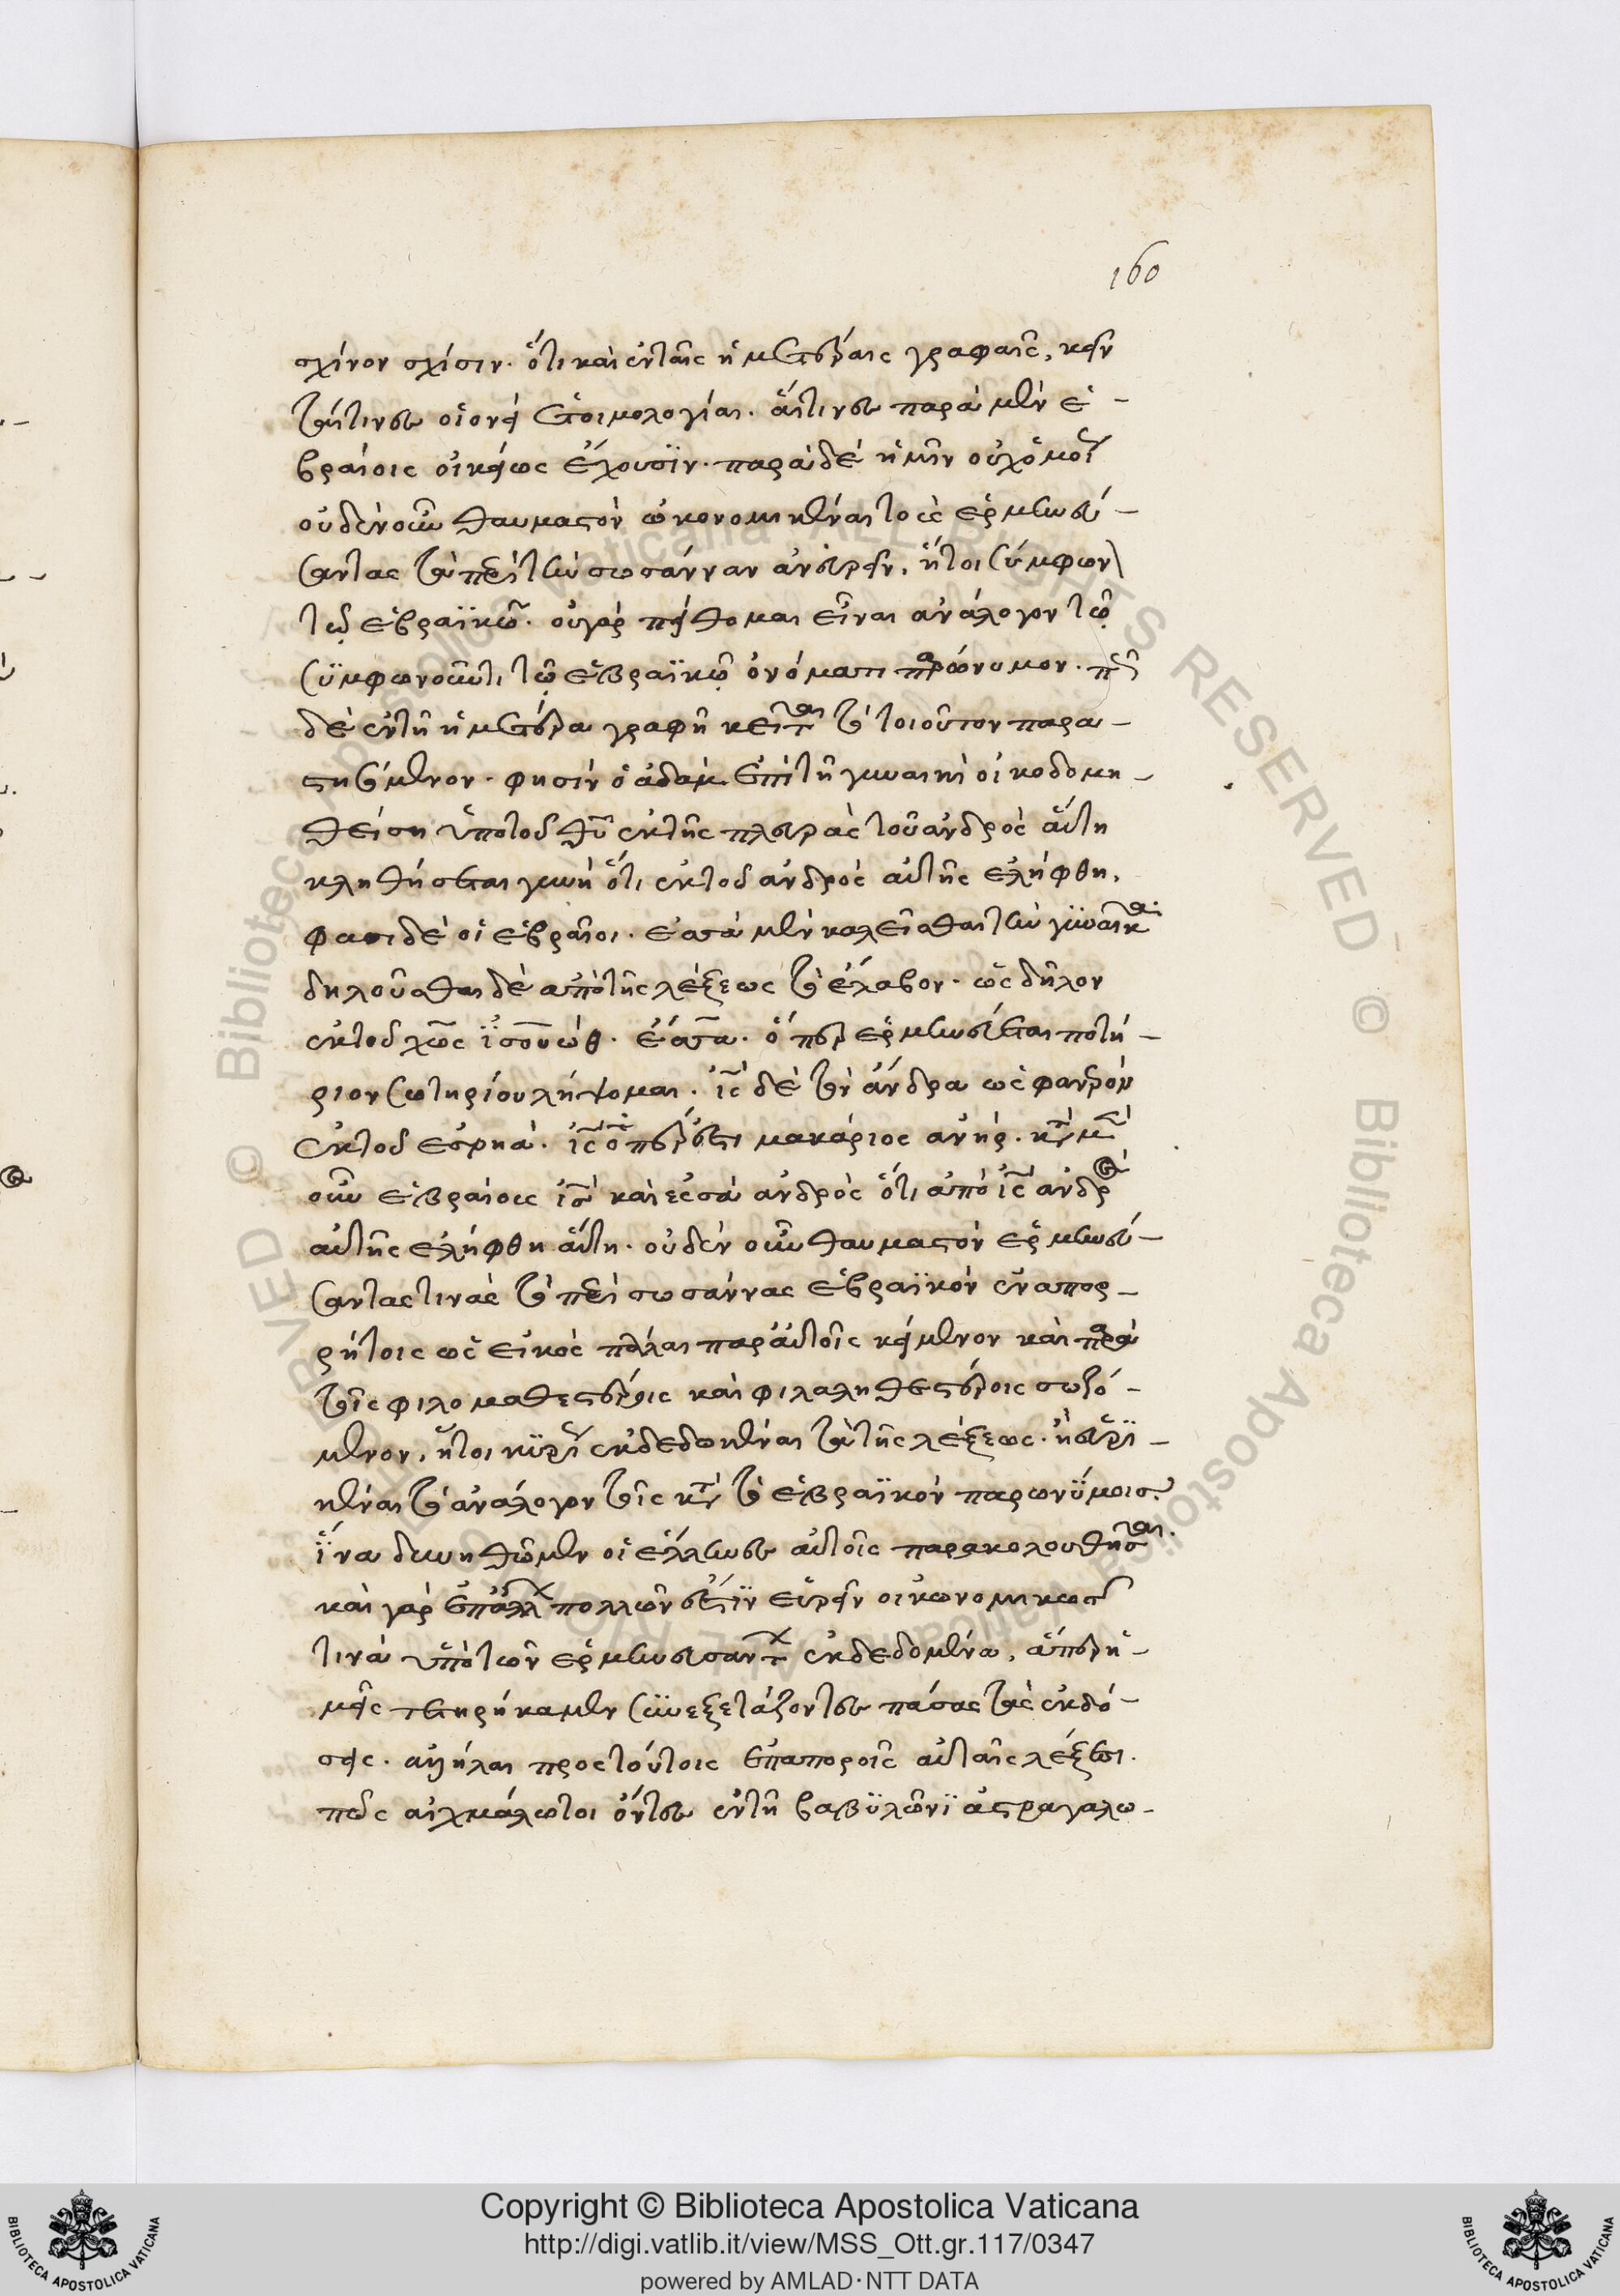 160
σχίνον σχίσιν. ὅτι καὶ ἐν ταῖς ἡμετέραις γραφαῖς, κεῖν
τά τινες οἱονεὶ ἐτοιμολογίαι. αἵτινες παρὰ μὲν ἑ-
βραίοις οἰκείως ἔχουσϊν. παρὰ δὲ ἡμῖν οὐχ ὁμοῖ
οὐδὲν οὖν θαυμαστὸν ὠκονομηκέναι τοὺς ἑρμηνεύ-
σαντας τὰ περὶ τὴν σωσάνναν ἀνευρεῖν, ἤτοι σύμφων
τῷ ἑβραϊκῷ. οὐ γὰρ πείθομαι εἶναι ἀνάλογον τῷ
συμφωνοῦντι τῷ ἑβραϊκῷ ὀνόματι παρώνυμον.
δὲ ἐν τῇ ἡμετέρα γραφῇ κεῖται τὸ τοιοῦτον παρα-
στησόμενον. φησὶν ὁ ἀδὰμ ἐπὶ τῇ γυναικὶ οἰκοδομη-
θείση ὑπὸ τοῦ θυ ἐκ τῆς πλευρᾶς τοῦ ἀνδρὸς αὕτη
κληθήσεται γυνὴ ὅτι ἐκ τοῦ ἀνδρὸς αὐτῆς ἐλήφθη,
φασι δὲ οἱ ἑβραῖοι. ἐσσὰ μὲν καλεῖσθαι τὴν γϋναῖκα.
δηλοῦσθαι δὲ ἀπὸ τῆς λέξεως τὸ ἔλαβον. ὡς δῆλον
ἐκ τοῦ χῶς ϊσουώθ. ἐσσα. ὅπερ ἑρμηνεύεται ποτή-
ριον σωτηρίου λήψομαι. ἲς δὲ τὸν ἄνδρα ὡς φανερὸν
ἐκ τοῦ ἐσρηὰ. ἲς ὅπερ ἐστι μακάριος ἀνήρ. κατὰ μὲν
οὖν ἑβραίοις ἲς καὶ ἐσσὰ ἀνδρὸς ὅτι ἀπὸ ἲς ἀνδρὸς
αὐτῆς ἐλήφθη αὕτη. οὐδὲν οὖν θαυμαστὸν ἑρμηνεύ-
σαντας τινὰς τὸ περὶ σωσάννας ἑβραϊκὸν ἐν ἀπορ-
ρήτοις ὡς εἰκὸς πάλαι παρ' αὐτοῖς κείμενον καὶ παρὰ
τοῖς φιλομαθεστέροις καὶ φιλαληθεστέροις σωζό-
μενον, ἤτοι κϋρί ἐκδεδωκέναι τὰ τῆς λέξεως. ἢ εὑρϊ-
κέναι τὸ ἀνάλογον τοῖς κατὰ τὸ ἑβραϊκὸν παρωνϋμοις.
ἵνα δυνηθῶμεν οἱ ἕλληνες αὐτοῖς παρακολουθῆσαι.
καὶ γὰρ ἐπ' ἄλλων πολλῶν ἐστϊν εὑρεῖν οἰκωνομικῶς
τινὰ ὑπὸ τῶν ἑρμηνευσάντων ἐκδεδομένα, ἅπερ ἡ-
μεῖς τετηρήκαμεν συνεξετάζοντες πάσας τὰς ἐκδό-
σεις. προς τούτοις ἐπαποροῖς αὐταῖς λέξεσι.
πῶς αἰχμάλωτοι ὄντες ἐν τῇ βαβϋλῶνϊ ἀστραγαλω-
Copyright © Biblioteca Apostolica Vaticana
http://digi.vatlib.it/view/MSS_Ott.gr.117/0347
powered by AMLAD·NTT DATA
BIBLIOTECA APOSTOLICA VATICANA
BIBLIOTECA APOSTOLICA VATICANA